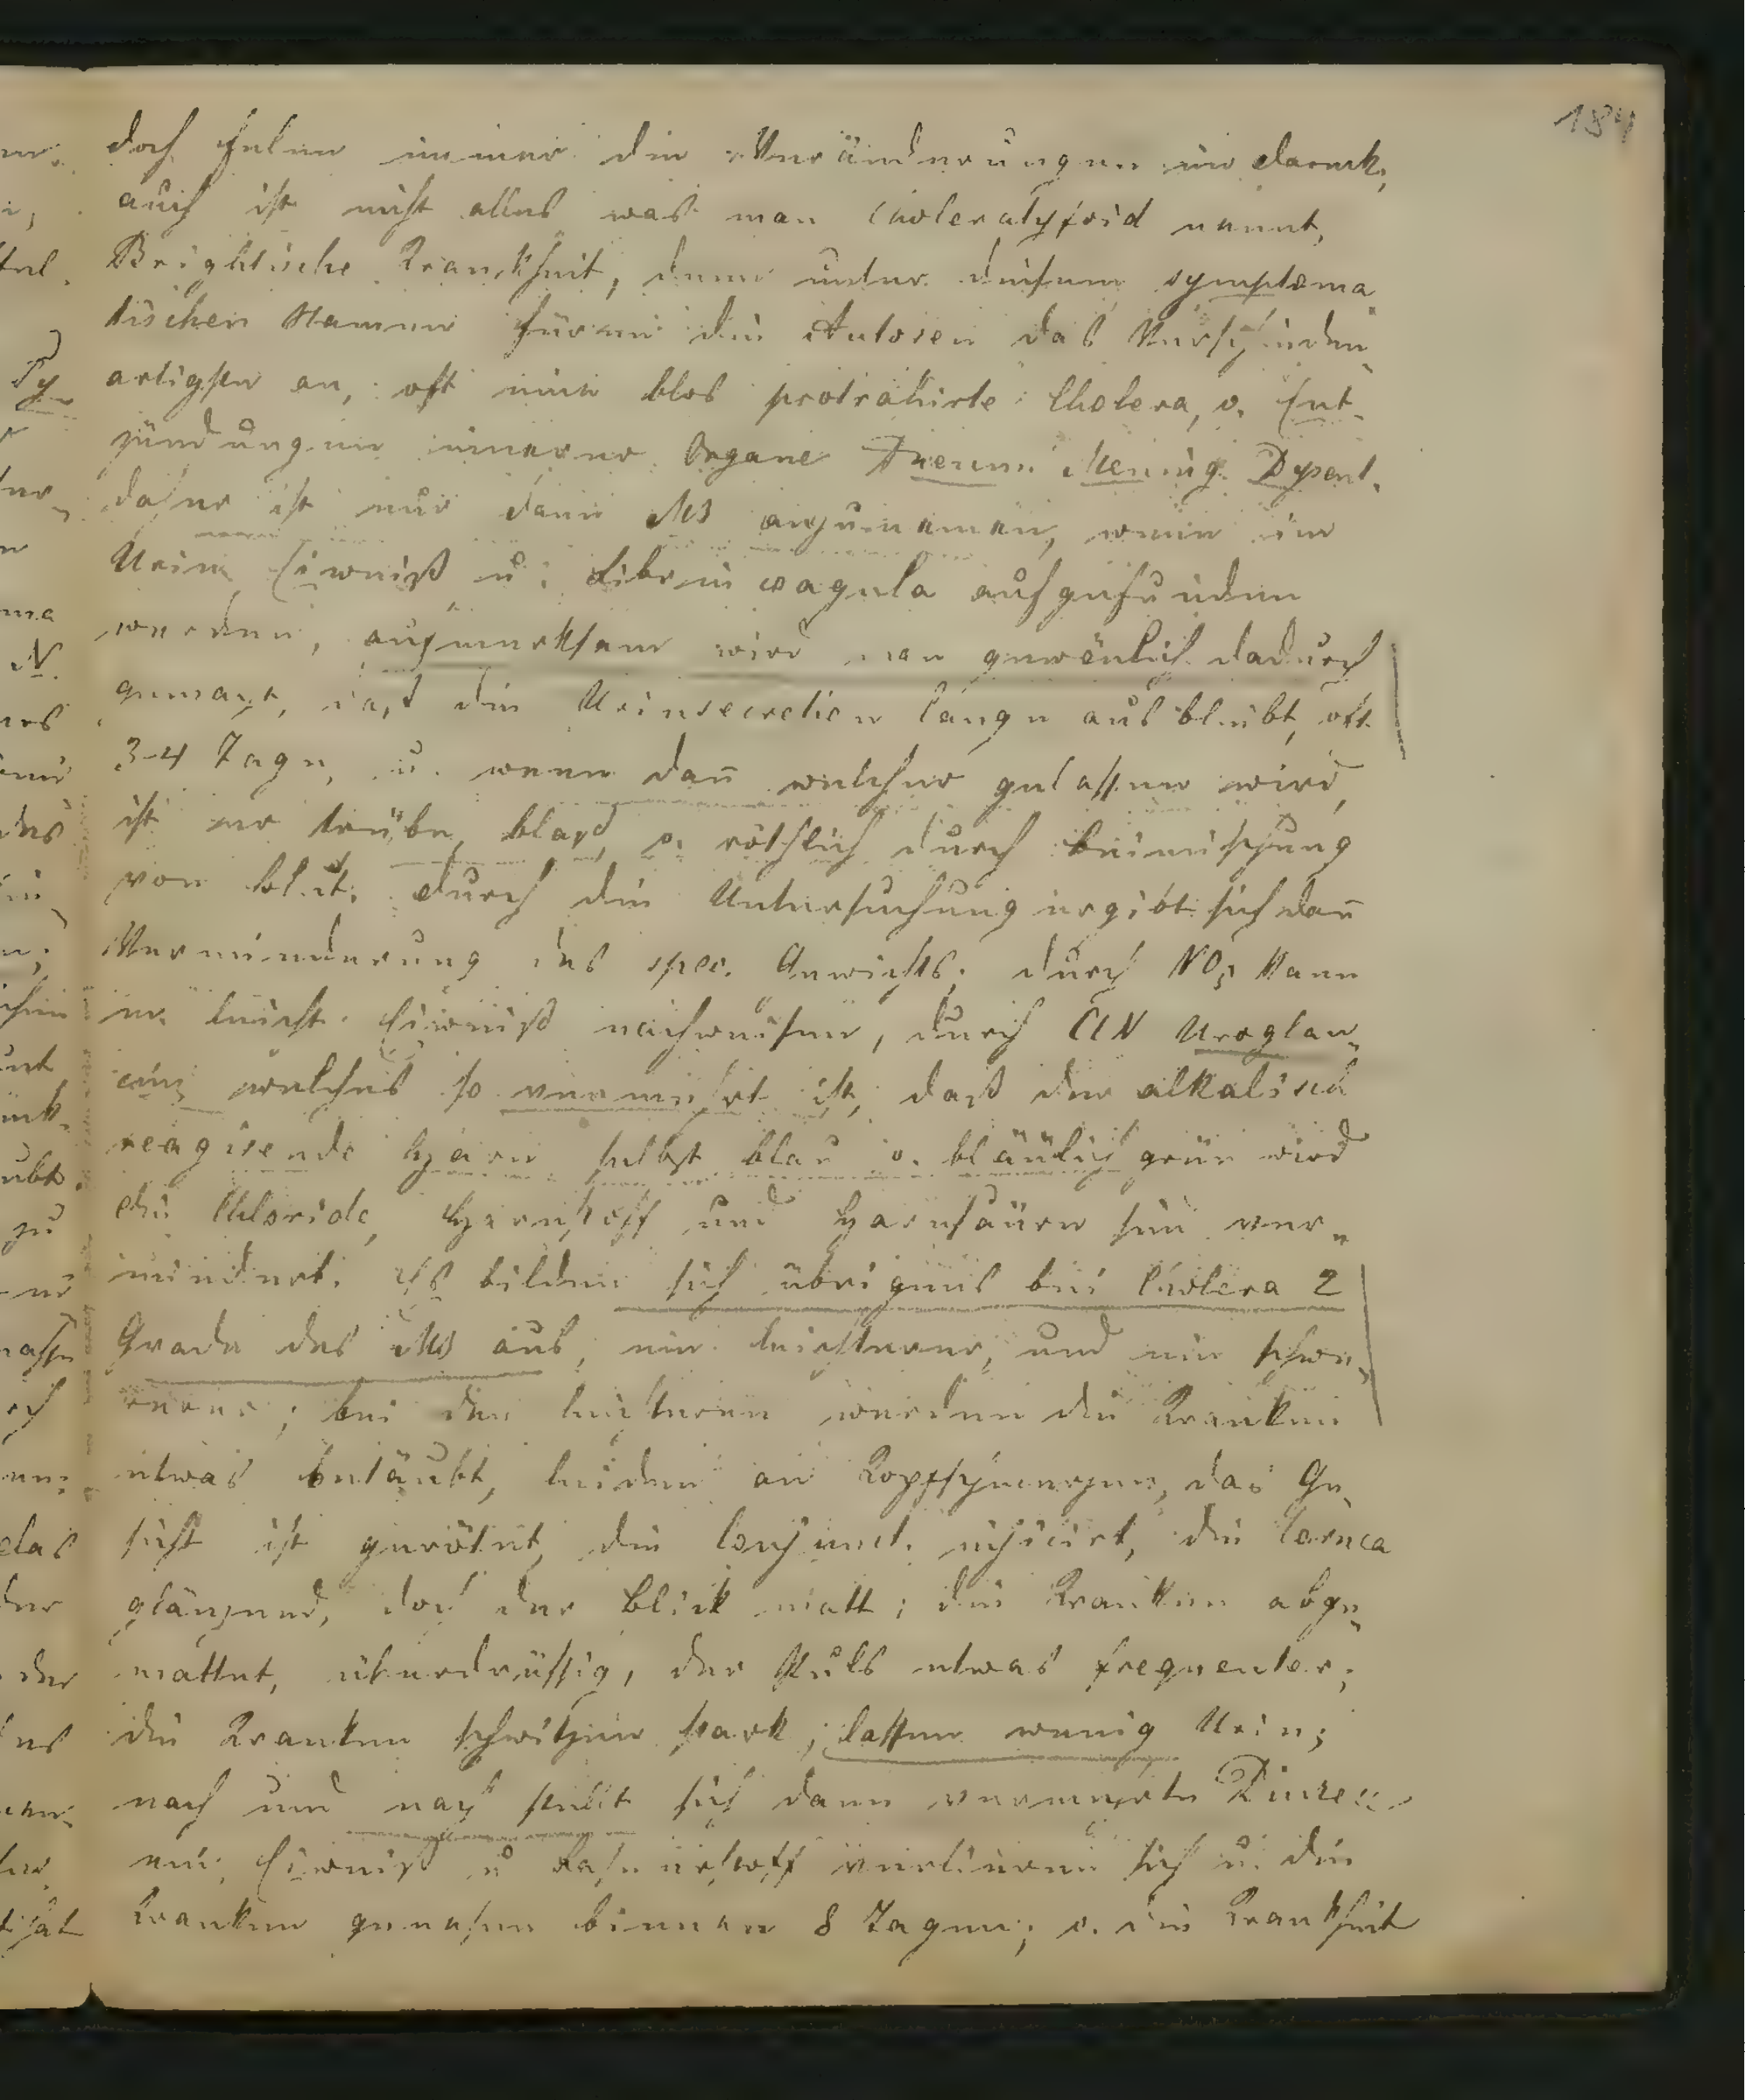 184
doch fehlen immer die Veränderungen im darmk,
auch ist nicht alles was man Choleratyfoid nennt,
Brightische Krankheit, denn unter diesem symptoma
tischen Namen füren die Autoren das Verschieden
artigste an, oft eine blos protrahirte Cholera, o. Ent-
zündungen innerer Organe Pneum. Mening. Dysent.
daher ist nur dann MB anzunemen, wenn im
Urin Eiweiß u. Fibrin coagula aufgefunden
werden, aufmerksam wird man gewönlich dadurch
gemacht, daß die Urinsecretion lange ausbleibt, oft
3-4 Tage, u. wenn dan̄ welcher gelassen wird,
ist er trübe, blaß, o. röthlich durch beimischung
von blut. durch die Untersuchung ergibt sich dan̄
Verminderung des spec. Gewichts; durch NO5 kann
m. leicht Eiweiß nachweisen, durch ClN Uroglau-
cin, welches so vermehrt ist, daß der alkalisch
reagirende Harn selbst blau o. bläulich grün wird
die Chloride, Harnstoff und Harnsäure sein ver-
mindert. Es bilden sich übrigens bei Cholera 2
Grade des MB aus, ein leichterer, und ein schwe-
rerer; bei den leichteren werden die Kranken
etwas betäubt, leiden an Kopfschmerzen, das Ge-
sicht ist gerötet, die Conjunct. injicirt, die Cornea
glänzend, doch der Blick matt; die Kranken abge-
mattet, überdrüssig, der Puls etwas frequenter;
die Kranken schwitzen stark, lassen wenig Urin;
nach und nach stellt sich dann vermehrte Diurese
ein, Eiweiß u. verlieren sich u. die
Kranken genesen binnen 8 Tagen; o. die Krankheit